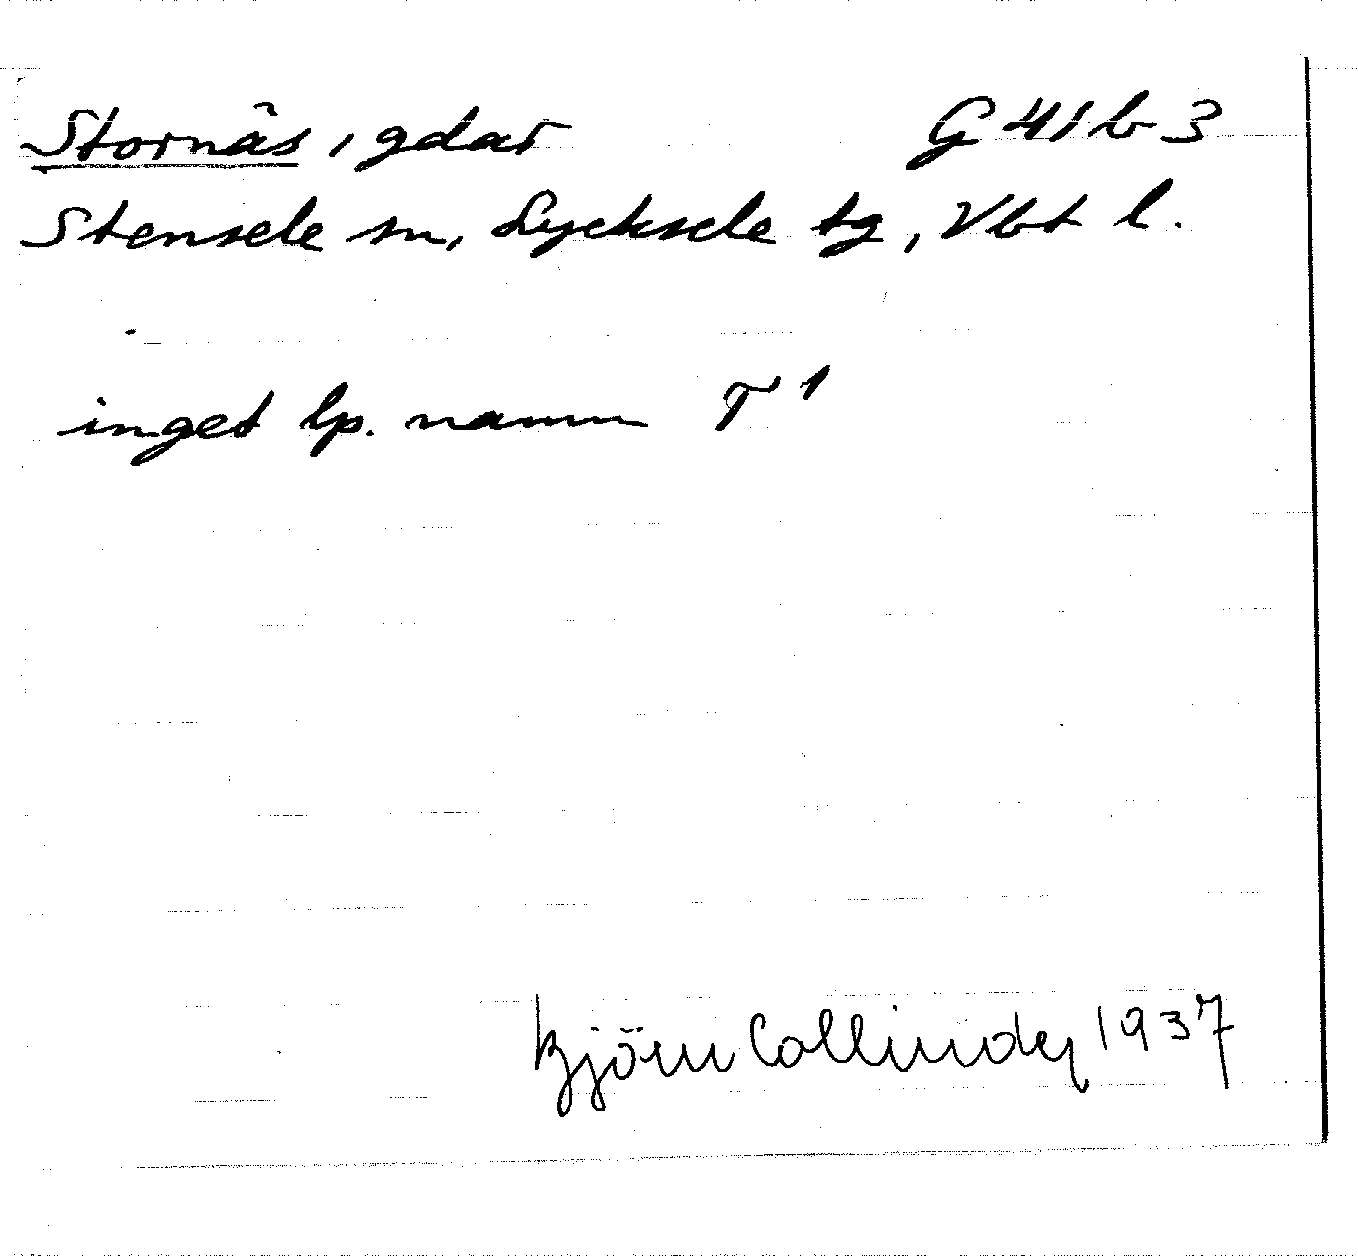 Stornäs, gdar G 41 b 3
Stensele sn, Lycksele tg, Vbt l.
inget lp. namn T 1
Björn Collinder 1937